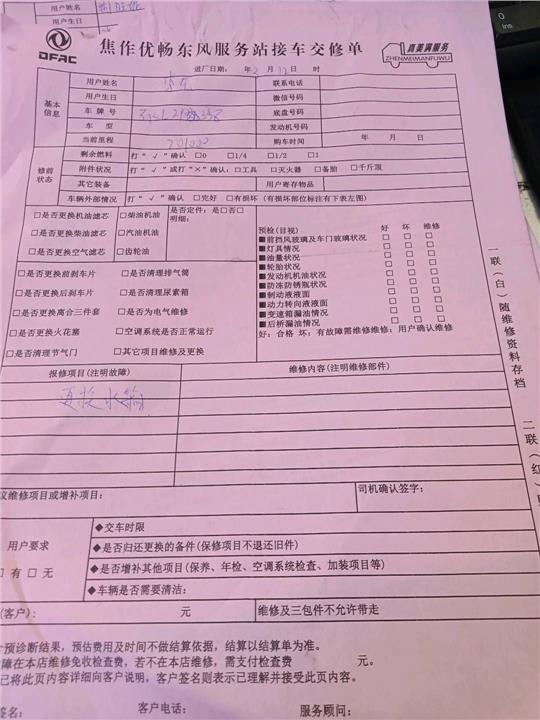 用户姓名
用户生日
DFAC
焦作优畅东风服务站接车交修单
真美满服务
ZHENMEIMANFUWU
进厂日期: 年 2 月 12 日 时
基本信息
用户姓名 联系电话
用户生日 微信号码
车牌号 底盘号码
车型 发动机号码
当前里程 201000 购车时间 年 月 日
修前状态
剩余燃料 打“√”确认 □0 □1/4 □1/2 □1
附件状况 打“√”或打“×”确认:□工具 □灭火器 □备胎 □千斤顶
其它装备 用户寄存物品
车辆外部情况 打“√”确认 □完好 □有损坏(有损坏部位标注有下表左图)
□是否更换机油滤芯 □柴油机油 是否定件:是□否□
明细:
□是否更换柴油滤芯 □汽油机油
□是否更换空气滤芯 □齿轮油
□是否更换前刹车片 □是否清理排气筒
□是否更换后刹车片 □是否清理尿素箱
□是否更换离合三件套 □是否为电气维修
□是否更换火花塞 □空调系统是否正常运行
□是否清理节气门 □其它项目维修及更换
预检(目视) 好 坏 维修
■前挡风玻璃及车门玻璃状况 □ □ □
■灯具情况 □ □ □
■油量状况 □ □ □
■轮胎状况 □ □ □
■发动机机油状况 □ □ □
■防冻防锈瓶状况 □ □ □
■制动液液面 □ □ □
■动力转向液液面 □ □ □
■变速箱漏油情况 □ □ □
■后桥漏油情况 □ □ □
好:合格 坏:有故障需维修维修:用户确认维修
报修项目(注明故障) 维修内容(注明维修部件)
更换水箱
议维修项目或增补项目: 司机确认签字:
用户要求
□有 □无
◆交车时限
◆是否归还更换的备件(保修项目不退还旧件)
◆是否增补其他项目(保养、年检、空调系统检查、加装项目等)
◆车辆是否需要清洁:
(客户): 元 维修及三包件不允许带走
预诊断结果,预估费用及时间不做结算依据,结算以结算单为准。
障在本店维修免收检查费,若不在本店维修,需支付检查费 元。
已将此页内容详细向客户说明,客户签名则表示已理解并接受此页内容。
签名: 客户电话: 服务顾问:
一联(白)随维修资料存档
二联(红)